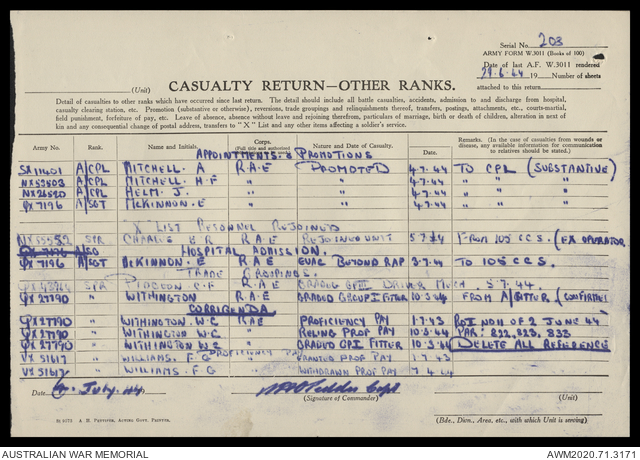 Serial No. 203
ARMY FORM W.3011 (Books of 100)
Date of last A.F. W.3011 rendered
29.6.44 19 Number of sheets
attached to this return
(Unit) CASUALTY RETURN—OTHER RANKS.
Detail of casualties to other ranks which have occurred since last return. The detail should include all battle casualties, accidents, admission to and discharge from hospital,
casualty clearing station, etc. Promotion (substantive or otherwise), reversions, trade groupings and relinquishments thereof, transfers, postings, attachments, etc., courts-martial,
field punishment, forfeiture of pay, etc. Leave of absence, absence without leave and rejoining therefrom, particulars of marriage, birth or death of children, alteration of next of
kin and any consequential change of postal address, transfers to "X" List and any other items affecting a soldier's service.
Army No. Rank. Name and Initials. Corps. Nature and Date of Casualty. Date. Remarks. (In the case of casualties from wounds or disease, any available information for communication to relatives should be stated.)
APPOINTMENTS & PROMOTIONS
SX11401 A/CPL MITCHELL. A R.A.E PROMOTED 4.7.44 TO CPL (SUBSTANTIVE)
A/CPL MITCHELL. H.F " " 4.7.44 " "
NX26520 A/CPL HELM. J. " " 4.7.44 " "
QX7196 A/SGT McKINNON. E " " 4.7.44 " "
X LIST PERSONNEL REJOINED
NX55552 SPR B R R.A.E REJOINED UNIT 5.7.44 FROM 105 C.C.S. (EX OPERATOR
HOSPITAL ADMISSION.
QX7196 A/SGT McKINNON. E R.A.E EVAC BEYOND RAP 3.7.44 TO 105 C.C.S.
TRADE GROUPINGS.
SPR PIDGEON C.F R.A.E GRADED GPIII DRIVER MECH. 5.7.44
QX27790 " WITHINGTON R.A.E GRADED GROUP I FITTER 10.3.44 FROM A/FITTER (CONFIRMED)
CORRIGENDA
QX27790 " WITHINGTON. W.C RAE PROFICIENCY PAY 1.7.43 PT I NOM OF 2 JUNE 44
QX27790 " WITHINGTON W.C " RELINQ PROF PAY 10.3.44 PAR: 822, 823, 833
QX27790 " WITHINGTON WC " GRADED GPI FITTER 10.3.44 DELETE ALL REFERENCE
PROFICIENCY PAY
VX51617 " WILLIAMS. F G " GRANTED PROF PAY 1.7.43
VX51617 " WILLIAMS. F.G " WITHDRAWN PROF PAY 7.4.44
Date July 44 Capt (Unit)
(Signature of Commander)
A. H. PETTIFER, ACTING GOVT. PRINTER. (Bde., Divn., Area, etc., with which Unit is serving)
AUSTRALIAN WAR MEMORIAL AWM2020.71.3171